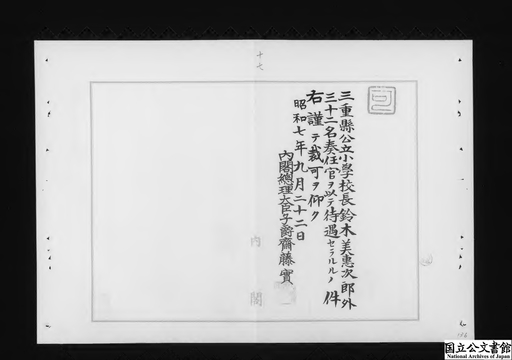 十七
三重縣公立小學校長鈴木美惠次郎外
三十二名奏任官ヲ以テ待遇セラルルノ件
右謹テ裁可ヲ仰ク
昭和七年九月二十二日
內閣總理大臣子爵齋藤實
內閣
国立公文書館
National Archives of Japan